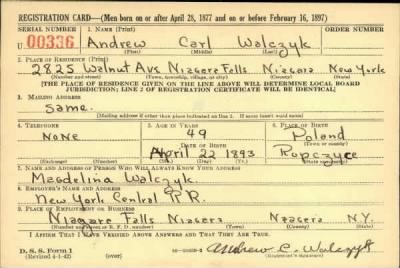 REGISTRATION CARD—(Men born on or after April 28, 1877 and on or before February 16, 1897)
SERIAL NUMBER 1. NAME (Print)
U00336 Andrew Carl Walczyk
(First) (Middle) (Last)
2. PLACE OF RESIDENCE (Print)
2825 Walnut Ave Niagara Falls Niagara New York
(Number and street) (Town, township, village, or city) (County) (State)
[THE PLACE OF RESIDENCE GIVEN ON THE LINE ABOVE WILL DETERMINE LOCAL BOARD
JURISDICTION; LINE 2 OF REGISTRATION CERTIFICATE WILL BE IDENTICAL]
3. MAILING ADDRESS
Same.
[Mailing address if other than place indicated on line 2. If same insert word same]
4. TELEPHONE 5. AGE IN YEARS 6. PLACE OF BIRTH
None 49 Poland
DATE OF BIRTH (Town or county)
April 22 1893 Ropczyce
(Exchange) (Number) (Mo.) (Day) (Yr.) (State or country)
7. NAME AND ADDRESS OF PERSON WHO WILL ALWAYS KNOW YOUR ADDRESS
Magdelina Walczyk
8. EMPLOYER'S NAME AND ADDRESS
New York Central R.R.
9. PLACE OF EMPLOYMENT OR BUSINESS
Niagara Falls Niagara Niagara N.Y.
(Number and street or R. F. D. number) (Town) (County) (State)
I AFFIRM THAT I HAVE VERIFIED ABOVE ANSWERS AND THAT THEY ARE TRUE.
D. S. S. Form 1
(Revised 4-1-42) (over) Andrew C. Walczyk
(Registrant's signature)